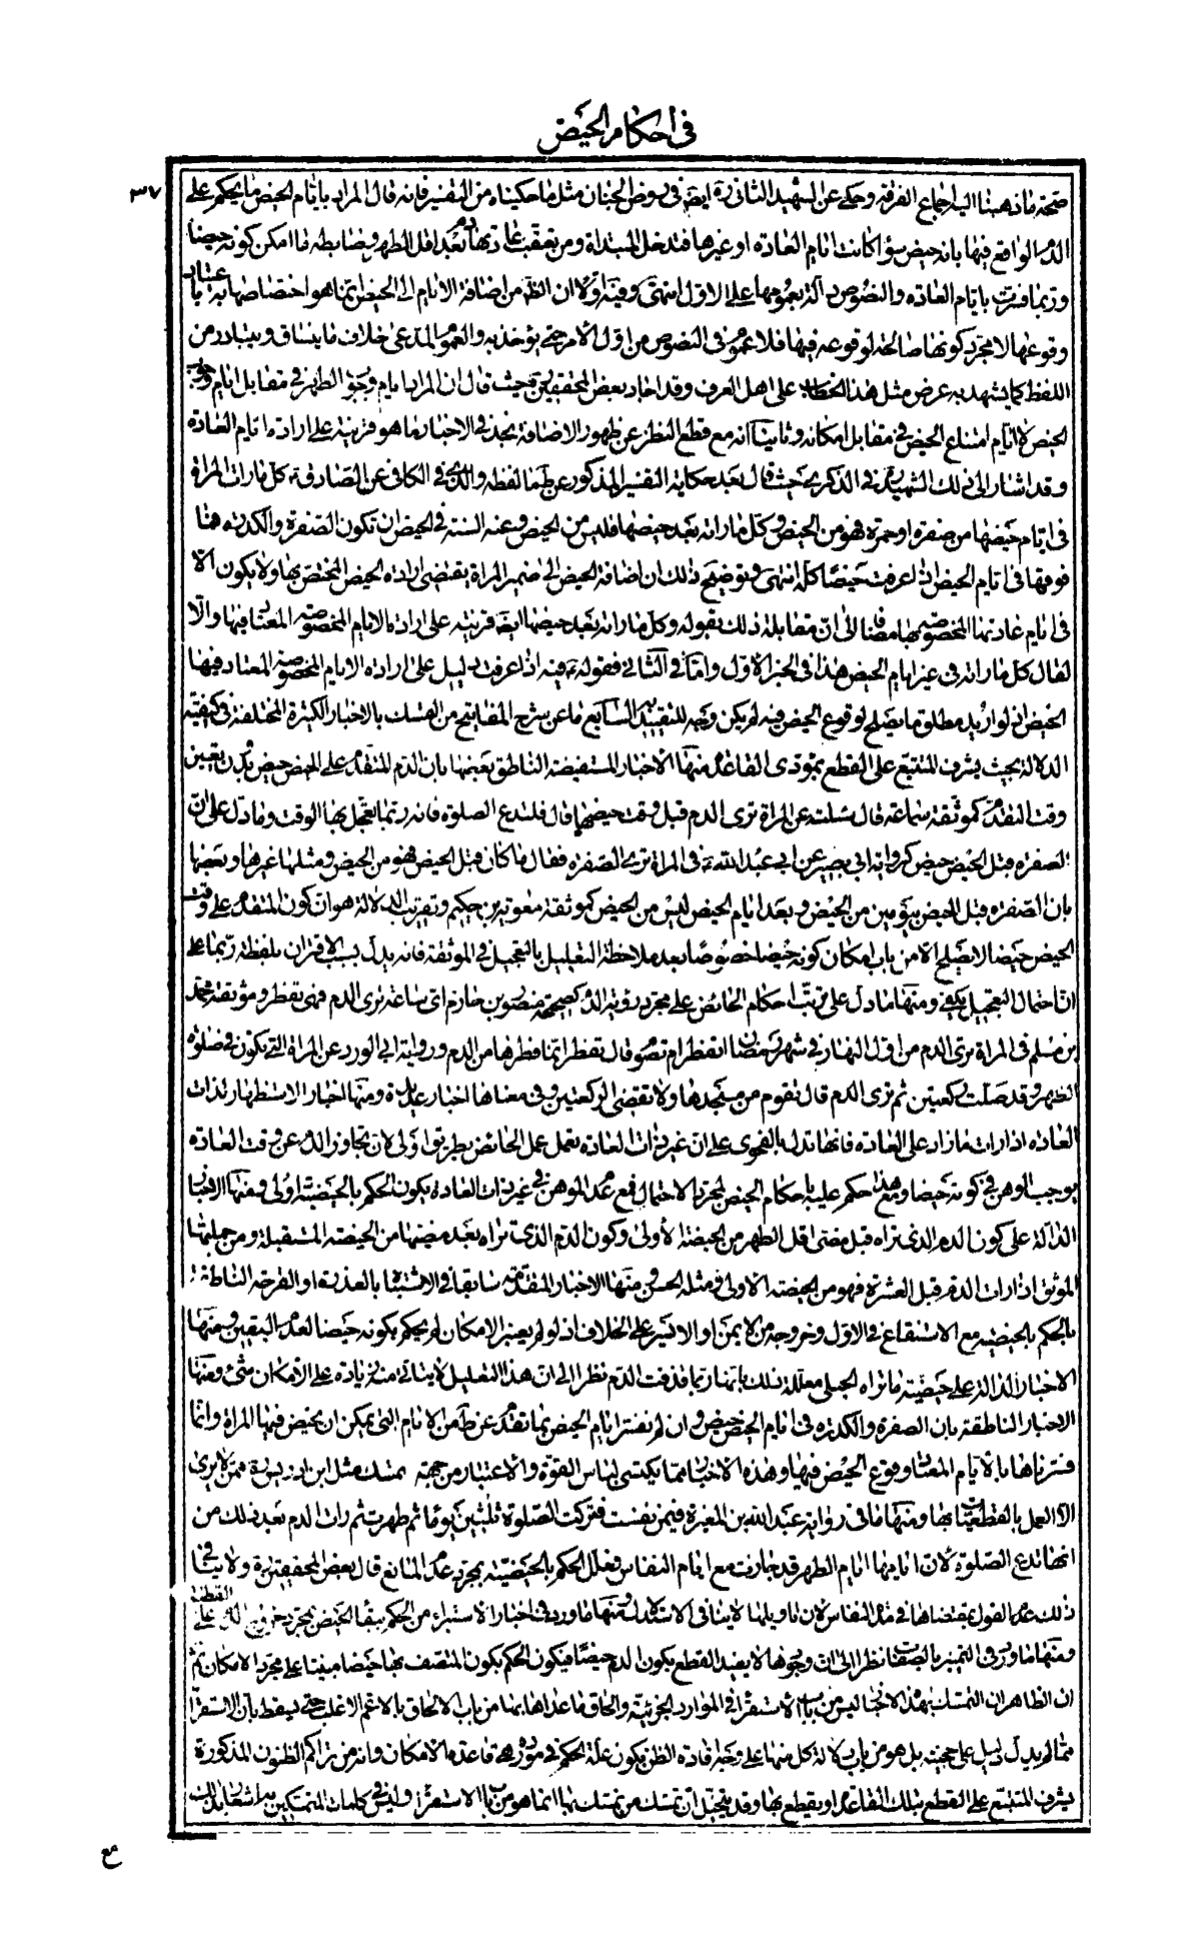 في احكام الحيض
٣٧
صحة ما ذهبنا اليه اجماع الفرقة وحكى عن الشهيد الثاني ره ايضا في روض الجنان مثل ما حكيناه من التفسير فانه قال المراد بايام الحيض ما يحكم على
الدم الواقع فيها بانه حيض سواء كانت ايام العادة او غيرها فتدخل المبتداة ومن تعقب عادتها دم بعد اقل الطهر وضابطه ما امكن كونه حيضا
وربما فسرت بايام العادة والنصوص دالة بعمومها على الاول انتهى وفيه اولا ان الظاهر من اضافة الايام الى الحيض انما هو اختصاصها به باعتياد
وقوعها لا مجرد كونها صالحة لوقوعه فيها فلا عموم في النصوص من اول الامر حتى يؤخذ به والعموم المدعى خلاف ما ينساق ويتبادر من
اللفظ كما يشهد به عرض مثل هذا الخطاب على اهل العرف وقد اجاد بعض المحققين حيث قال ان المراد ايام وجود الطهر في مقابل ايام وجود
الحيض لا ايام امتناع الحيض في مقابل امكانه وثانيا انه مع قطع النظر عن ظهور الاضافة نجد في الاخبار ما هو قرينة على ارادة ايام العادة
وقد اشار الى ذلك الشهيد في الذكرى حيث قال بعد حكاية التفسير المذكور عن ط ما لفظه والذي في الكافي عن الصادق ع كل ما رات المراة
في ايام حيضها من صفرة او حمرة فهو من الحيض وكل ما راته بعد حيضها فليس من الحيض وعنه السنة في الحيض ان تكون الصفرة والكدرة فما
فوقها في ايام الحيض اذا عرفت حيضا كله انتهى وتوضيح ذلك ان اضافة الحيض الى ضمير المراة يقتضي ارادة الحيض المختص بها ولا يكون الا
في ايام عادتها المخصوصة بها مضافا الى ان مقابلة ذلك بقوله وكل ما راته بعد حيضها ايضا قرينة على ارادة الايام المخصوصة المعتاد فيها والا
لقال كل ما راته في غير ايام الحيض هذا في الخبر الاول واما في الثاني فقوله ع فيه اذا عرفت دليل على ارادة الايام المخصوصة المعتاد فيها
الحيض اذ لو اريد مطلق ما يصلح لوقوع الحيض فيه لم يكن وجه للتقييد السابع ما عن شرح المفاتيح من التمسك بالاخبار الكثيرة المختلفة في كيفية
الدلالة بحيث يشرف المتتبع على القطع بمؤدى القاعدة منها الاخبار المستفيضة الناطق بعضها بان الدم المتقدم على الحيض حيض بدون تعيين
وقت التقدم كموثقة سماعة قال سئلته عن المراة ترى الدم قبل وقت حيضها قال فلتدع الصلوة فانه ربما يعجل بها الوقت وما دل على ان
الصفرة قبل الحيض حيض كرواية ابي بصير عن ابي عبد الله ع في المراة ترى الصفرة فقال ما كان قبل الحيض فهو من الحيض ومثلها غيرها وبعضها
بان الصفرة قبل الحيض بيومين من الحيض وبعد ايام الحيض ليس من الحيض كموثقة معوية بن حكيم وتقريب الدلالة هو ان كون المتقدم على وقت
الحيض حيضا لا يصلح الا من باب امكان كونه حيضا خصوصا بعد ملاحظة التعليل بالتعجيل في الموثقة فانه يدل بسبب الاقتران بلفظة ربما على
ان احتمال التعجيل يكفي ومنها ما دل على ترتب احكام الحائض على مجرد رؤية الدم كصحيحة منصور بن حازم اى ساعة ترى الدم فهي تفطر وموثقة محمد
بن مسلم في المراة ترى الدم من اول النهار في شهر رمضان اتفطر ام تصوم قال تفطر انما فطرها من الدم ورواية ابي الورد عن المراة التي تكون في صلوة
الظهر وقد صلت ركعتين ثم ترى الدم قال تقوم من مسجدها ولا تقضي الركعتين وفي معناها اخبار عديدة ومنها اخبار الاستظهار لذات
العادة اذا رات ما زاد على العادة فانها تدل بالفحوى على ان غير ذات العادة تعمل عمل الحائض بطريق اولى لان تجاوز الدم عن وقت العادة
يوجب الوهن في كونه حيضا ومع هذا حكم عليه باحكام الحيض لمجرد الاحتمال فمع عدم الموهن في غير ذات العادة يكون الحكم بالحيضية اولى ومنها الاخبار
الدالة على كون الدم الذي تراه قبل مضي اقل الطهر من الحيضة الاولى وكون الدم الذي تراه بعد مضيها من الحيضة المستقبلة ومن جملتها
الموثق اذا رات الدم قبل العشرة فهو من الحيضة الاولى ومثله الحسن ومنها الاخبار المتقدمة سابقا في الاشتباه بالعذرة او القرحة الناطقة
بالحكم بالحيضية مع الاستنقاع في الاول وخروجه من الايمن او الايسر على الخلاف اذ لو لم يعتبر الامكان لم يحكم بكونه حيضا لعدم اليقين ومنها
الاخبار الدالة على حيضية ما تراه الحبلى معللة ذلك بانها ربما قذفت الدم نظرا الى ان هذا التعليل لا يتاتى منه زيادة على الامكان شئ ومنها
الاخبار الناطقة بان الصفرة والكدرة في ايام الحيض حيض وان لم نفسر ايام الحيض بما تقدم عن ط من الايام التي يمكن ان تحيض فيها المراة وانما
فسرناها بالايام المعتاد وقوع الحيض فيها وهذه الاخبار مما يكتسى لباس القوة والاعتبار من جهة تمسك مثل ابن ادريس ره ممن لا يرى
الا العمل بالقطعيات بها ومنها ما في رواية عبد الله بن المغيرة فيمن نفست فتركت الصلوة ثلثين يوما ثم طهرت ثم رات الدم بعد ذلك من
انها تدع الصلوة لان ايامها ايام الطهر قد جازت مع ايام النفاس فعلل الحكم بالحيضية بمجرد عدم المانع قال بعض المحققين ره ولا ينافي
ذلك عدم القول بمقتضاها في مدة النفاس لان تاويلها لا ينافي الاستدلال ومنها ما ورد في اخبار الاستبراء من الحكم ببقاء الحيض بمجرد خروج الدم على القطنة
ومنها ما ورد في التميز بالصفات نظرا الى ان وجودها لا يفيد القطع بكون الدم حيضا فيكون الحكم بكون المتصف بها حيضا مبنيا على مجرد الامكان ثم
ان الظاهر ان التمسك بهذه الاخبار ليس من باب الاستقراء في الموارد الجزئية والحاق ما عداها بها من باب الالحاق بالاعم الاغلب حتى يسقط بان الاستقراء
مما لم يدل دليل على حجيته بل هو من باب دلالة كل منها على وجه افادة الظن بكون علة الحكم في مورده هي قاعدة الامكان وانه من تراكم الظنون المذكورة
يشرف المتتبع على القطع بتلك القاعدة او يقطع بها وقد يتخيل ان تمسك من تمسك بها انما هو من باب الاستقراء وليس في كلمات المتمسكين بها اشعار بذلك
مع